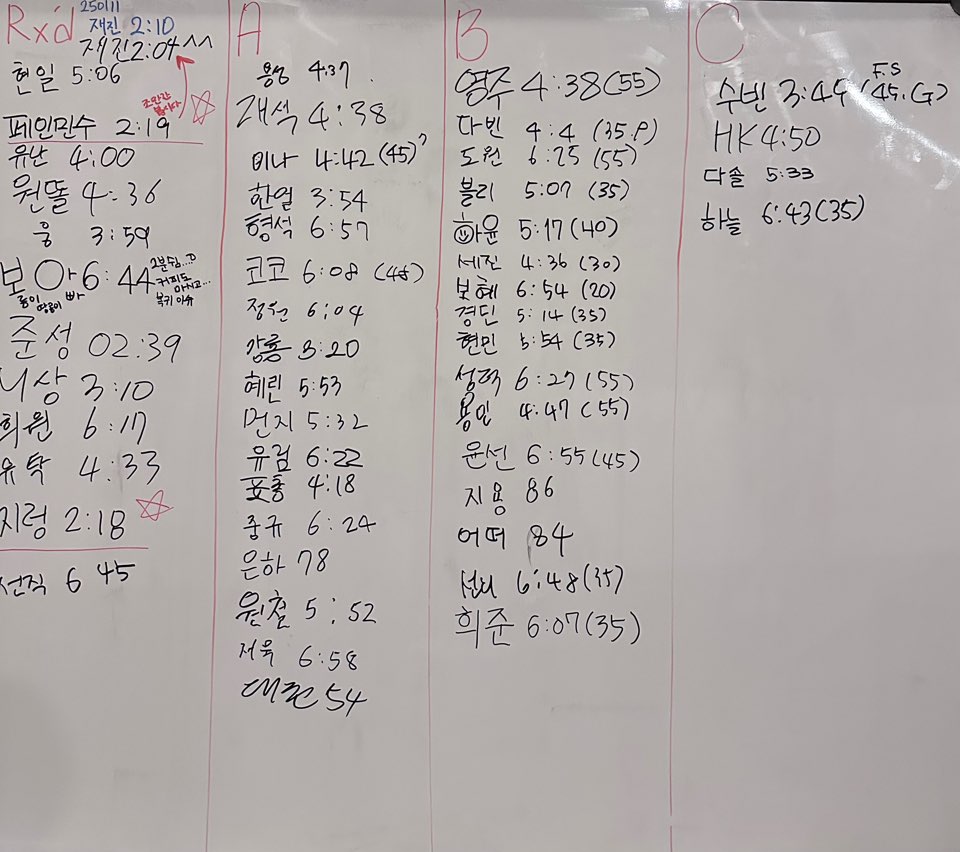 Rx'd
250111
재진 2:10
재진 2:04 ^^
현일 5:06
조만간
봅시다
페인민수 2:19
유난 4:00
원똘 4:36
웅 3:59
보아 6:44
2분쉼...
커피도
마시고...
복귀 이슈
준성 02:39
상 3:10
희원 6:17
유탁 4:33
지렁 2:18
선직 6 45
A
용성 4:37
재석 4:38
미나 4:42 (45)?
한열 3:54
형석 6:57
코코 6:08 (45)
정원 6:04
강룡 3:20
혜린 5:53
먼지 5:32
유림 6:22
표총 4:18
중규 6:24
은하 78
원철 5:52
제육 6:58
대쿤 54
B
영주 4:38 (55)
다빈 4:4 (35.P)
도원 6:25 (55)
블리 5:07 (35)
하윤 5:17 (40)
세진 4:36 (30)
보혜 6:54 (20)
경민 5:14 (35)
현민 5:54 (35)
성혁 6:27 (55)
용민 4:47 (55)
윤선 6:55 (45)
지용 86
어떠 84
6:48 (35)
희준 6:07 (35)
C
F.S
수빈 3:49 (45.G)
HK 4:50
다솔 5:33
하늘 6:43 (35)